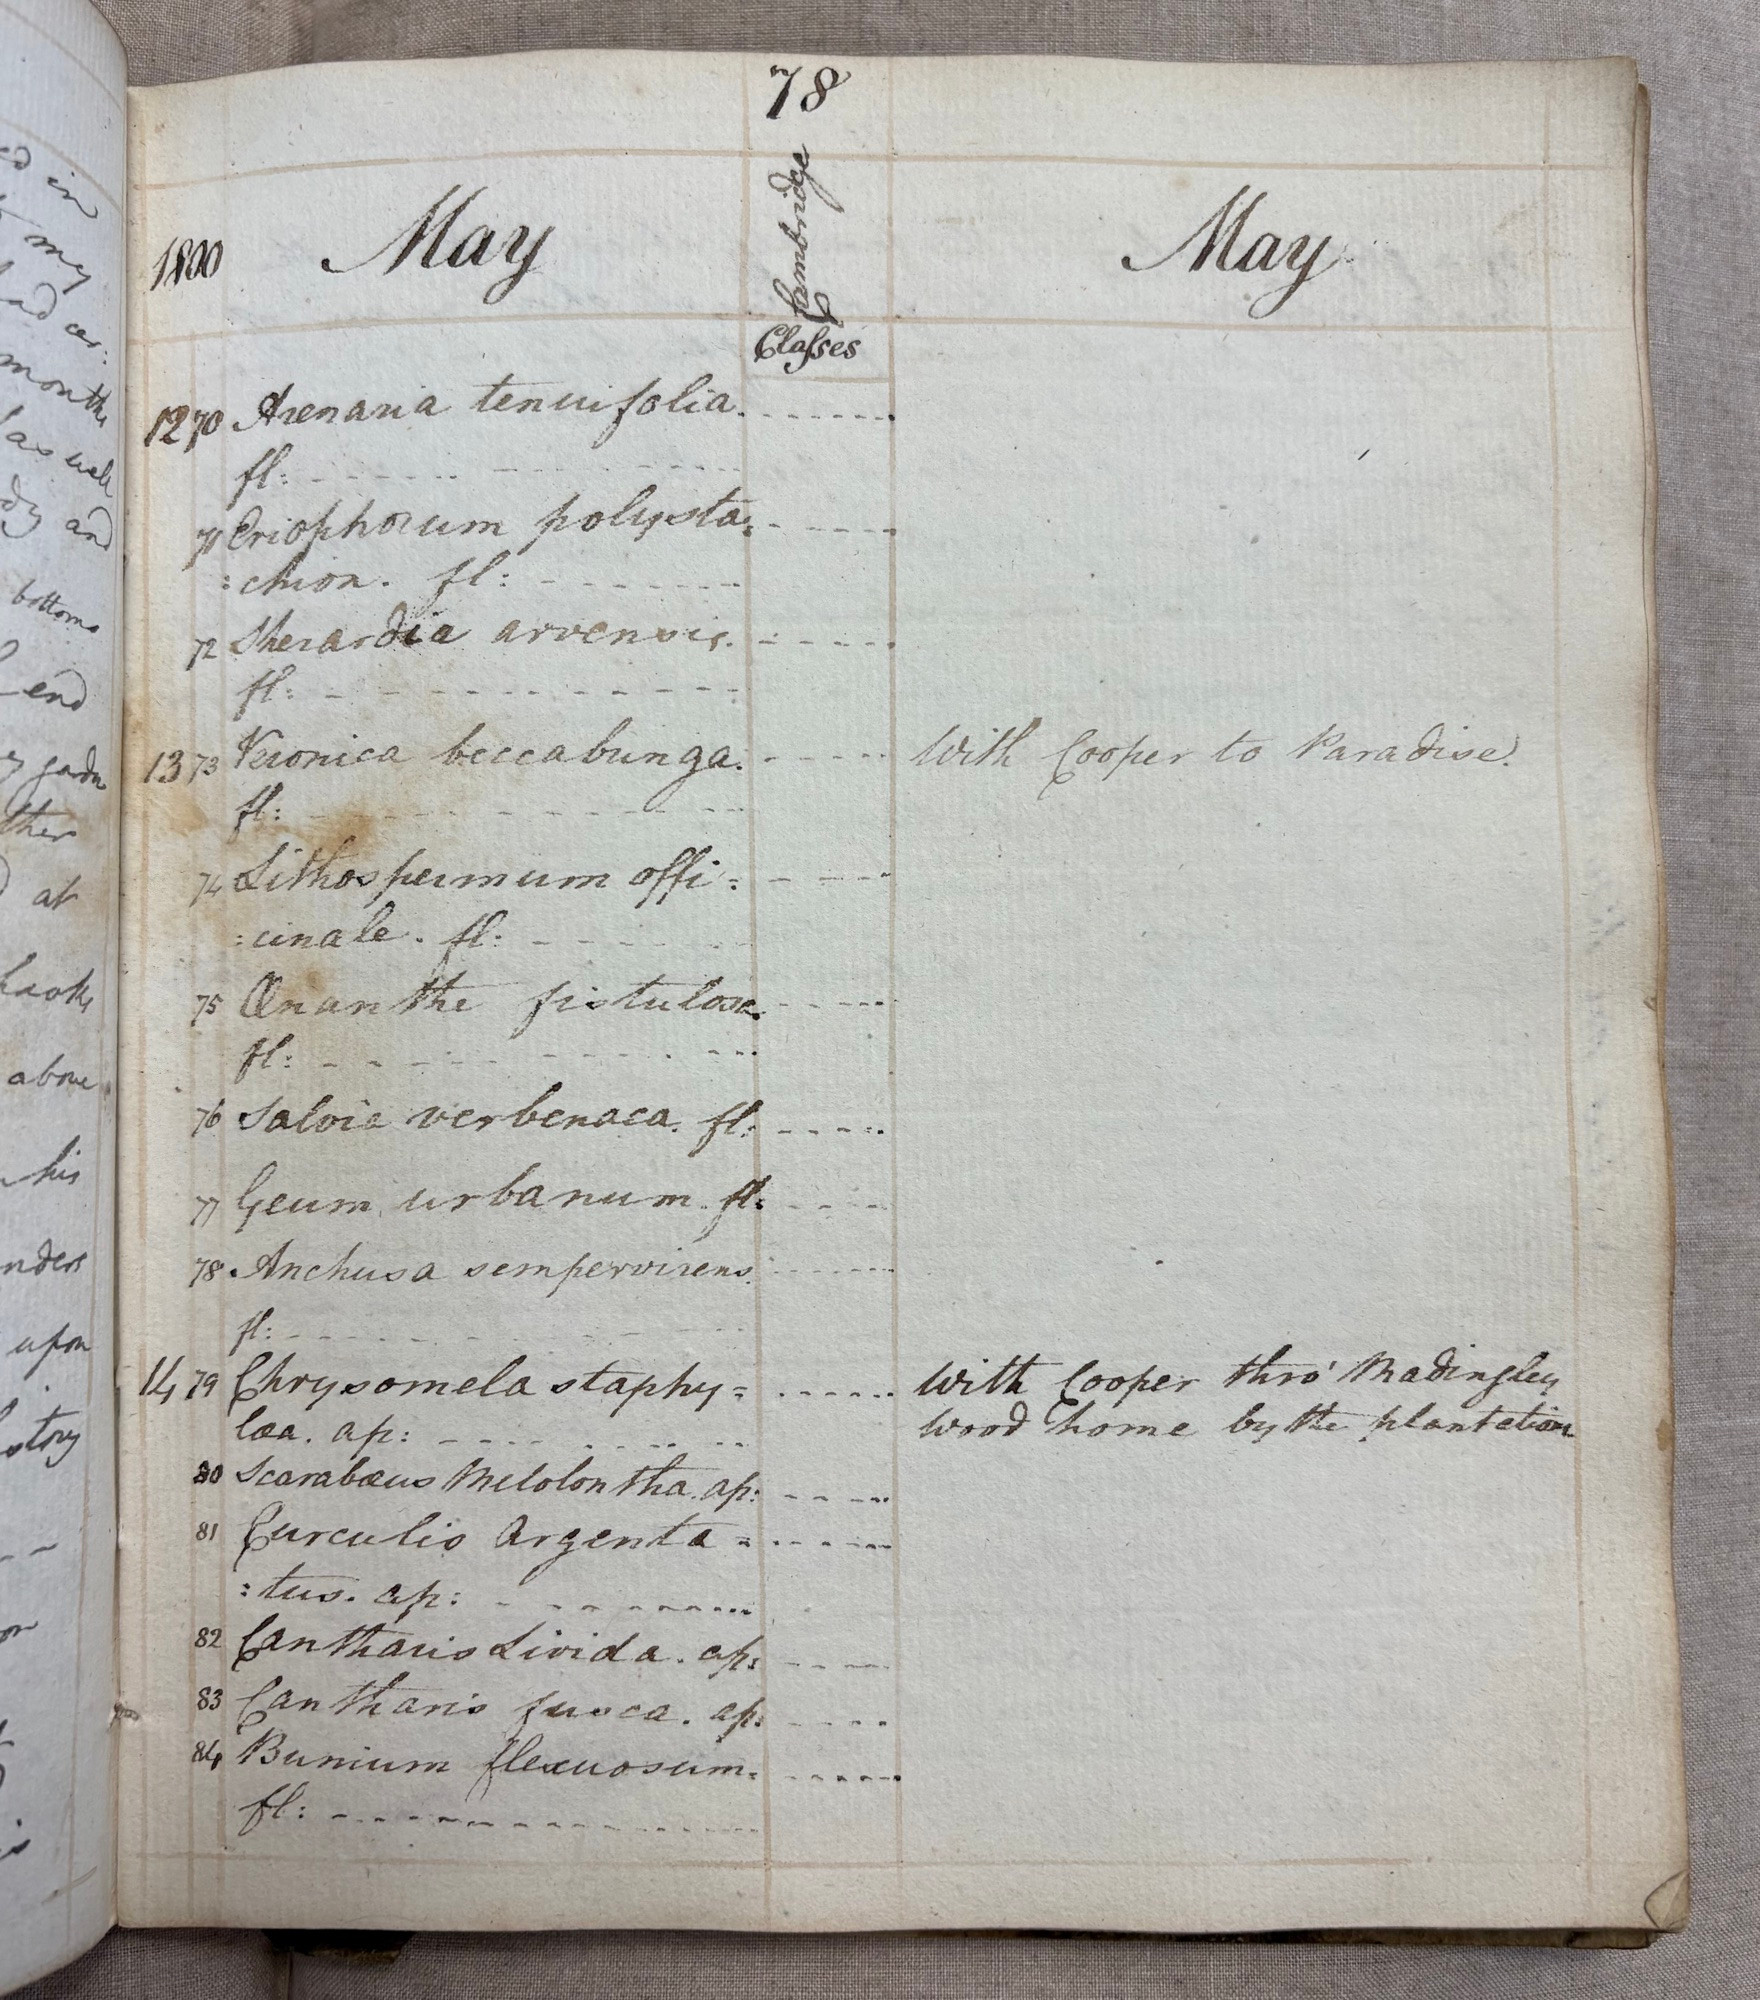 78
1800 May Cambridge May
Classes
12 70 Arenaria tenuifolia.
fl:
71 Eriophorum polysta:
:chion. fl:
72 Sherardia arvensis.
fl:
13 73 Veronica beccabunga. With Cooper to Paradise.
fl:
74 Lithospermum offi:
:cinale. fl:
75 Œnanthe fistulosa.
fl:
76 Salvia verbenaca. fl:
77 Geum urbanum. fl:
78 Anchusa sempervirens.
fl:
14 79 Chrysomela staphy= With Cooper thro' Madingley
læa. ap: wood home by the plantation
80 Scarabæus Melolontha. ap:
81 Curculio Argenta=
:tus. ap:
82 Cantharis Livida. ap:
83 Cantharis fusca. ap:
84 Bunium flexuosum.
fl:
in
my
and car:
months
as well
and
bottoms
end
at
above
his
upon
story